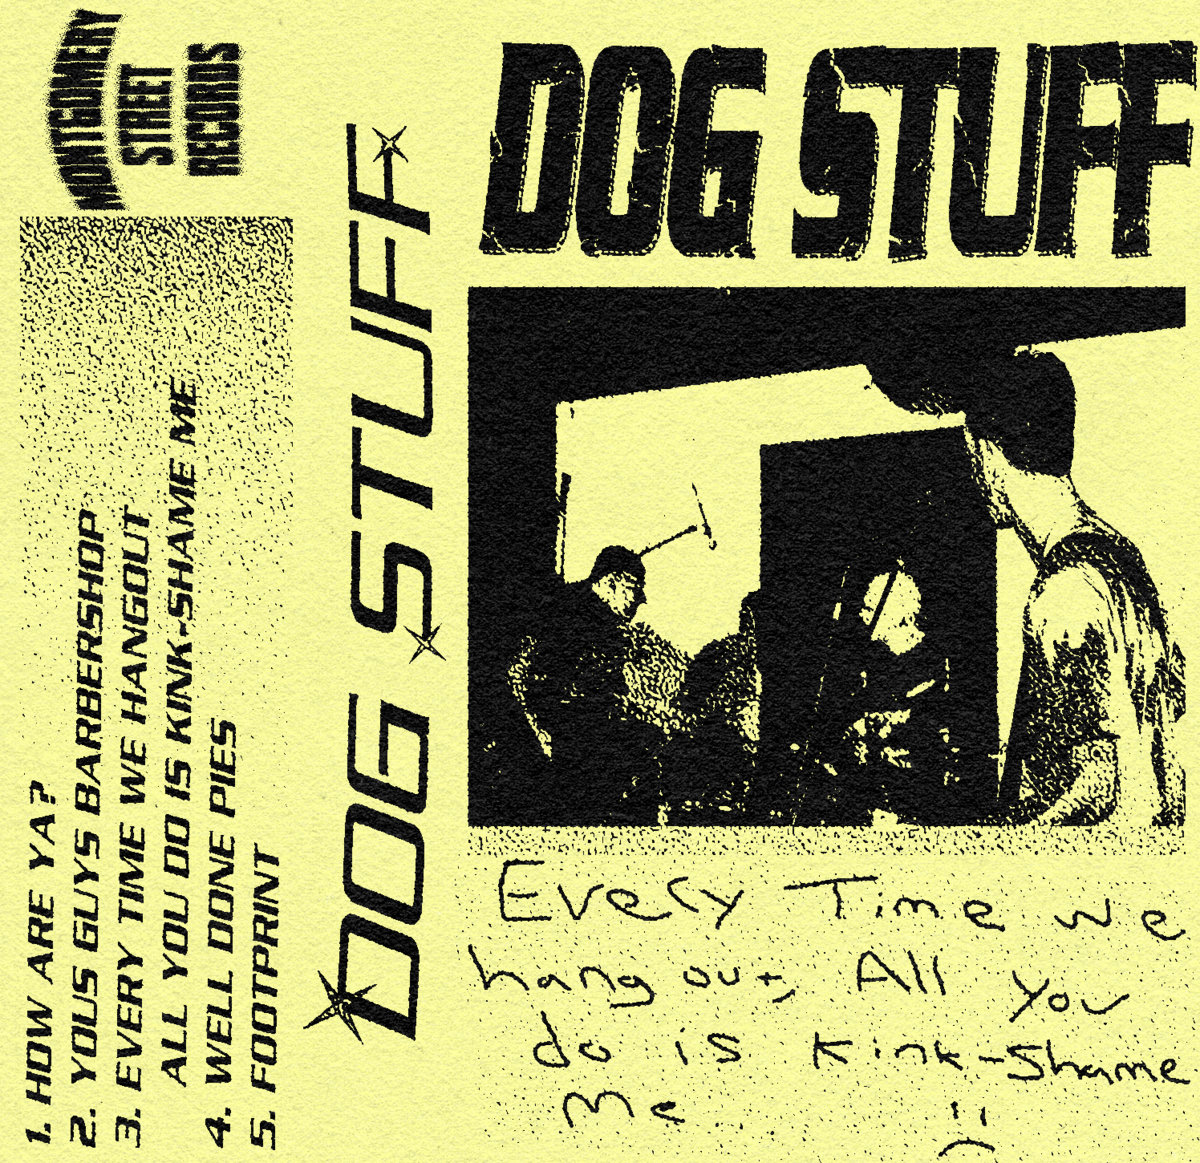 MONTGOMERY
STREET
RECORDS
1. HOW ARE YA?
2. YOUS GUYS BARBERSHOP
3. EVERY TIME WE HANGOUT
ALL YOU DO IS KINK-SHAME ME
4. WELL DONE PIES
5. FOOTPRINT
DOG STUFF
DOG STUFF
Every Time we
hang out, All you
do is Kink-Shame
me :(